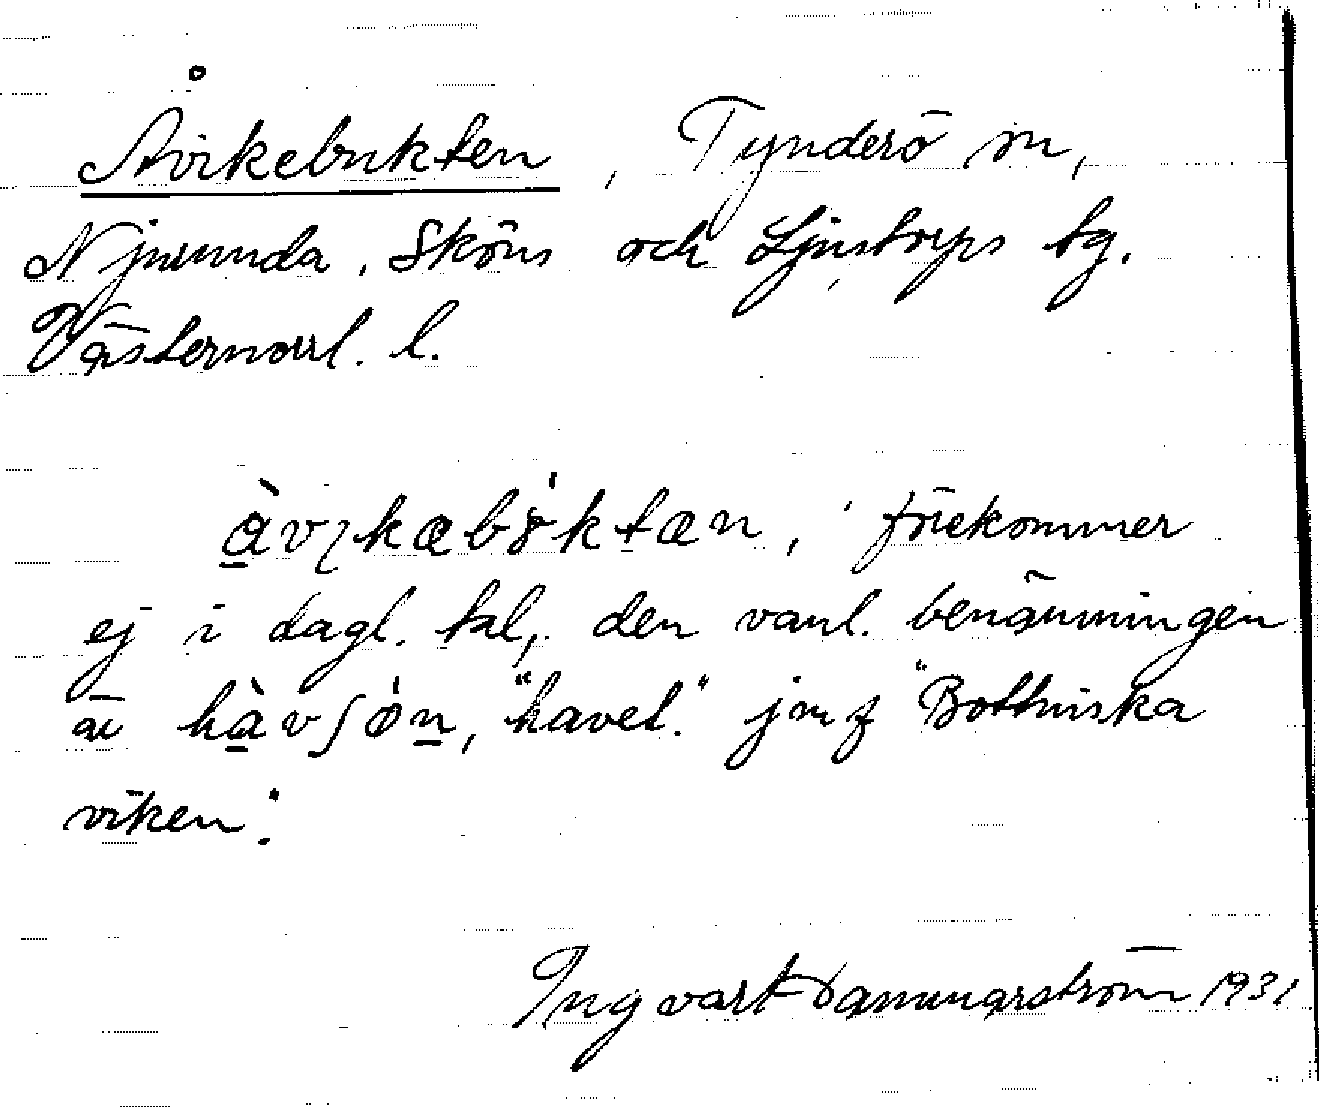 Åvikebukten, Tynderö sn,
Njurunda, Sköns och Ljustorps tg.
Västernorrl. l.
àvıkæbòktæn, förekommer
ej i dagl. tal, den vanl. benämningen
är hàvʃòn, "havet." jmf "Bottniska
viken".
Ingvart Dammarström 1931